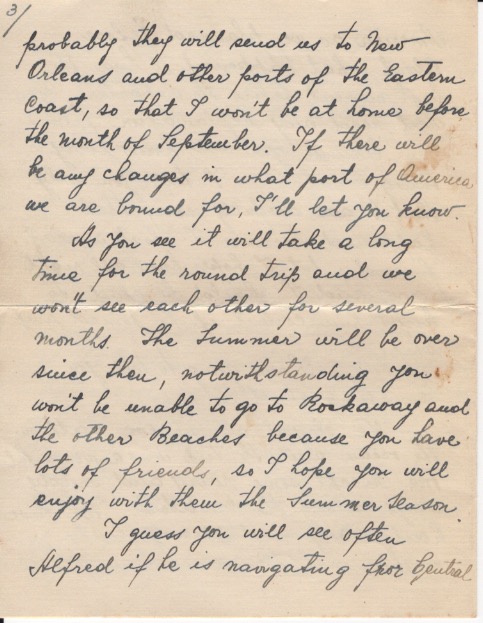 3/
probably they will send us to New
Orleans and other ports of the Eastern
Coast, so that I won't be at home before
the month of September. If there will
be any changes in what port of America
we are bound for, I'll let you know.
As you see it will take a long
time for the round trip and we
won't see each other for several
months. The Summer will be over
since then, notwithstanding you
won't be unable to go to Rockaway and
the other Beaches because you have
lots of friends, so I hope you will
enjoy with them the Summer season.
I guess you will see often
Alfred if he is navigating fror Central